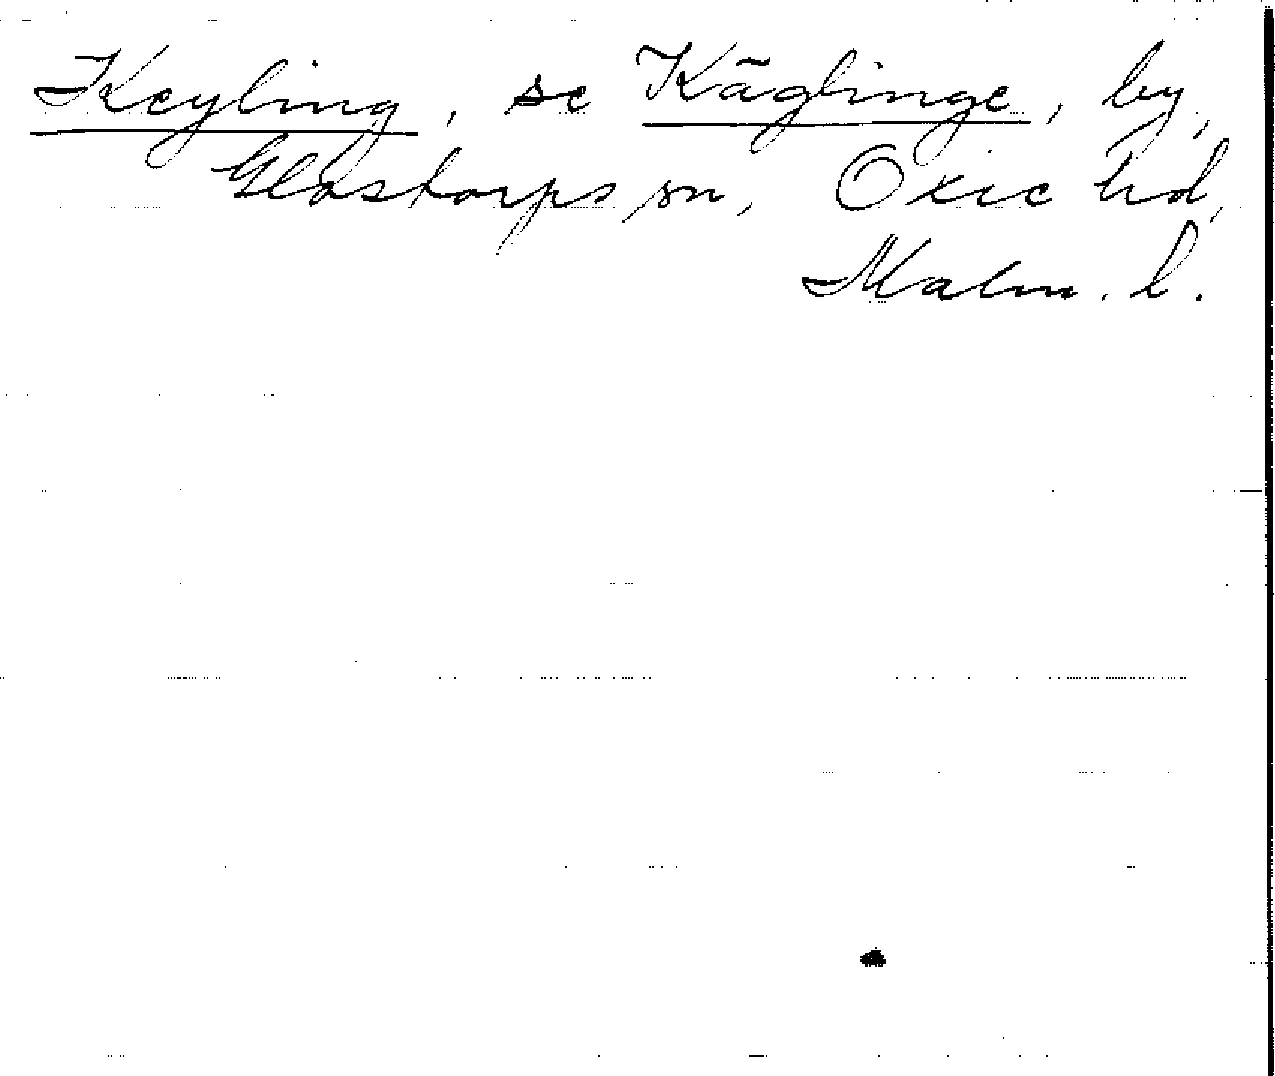 Keyling, se Käglinge, by,
Glostorps sn, Oxie hd,
Malm. l.